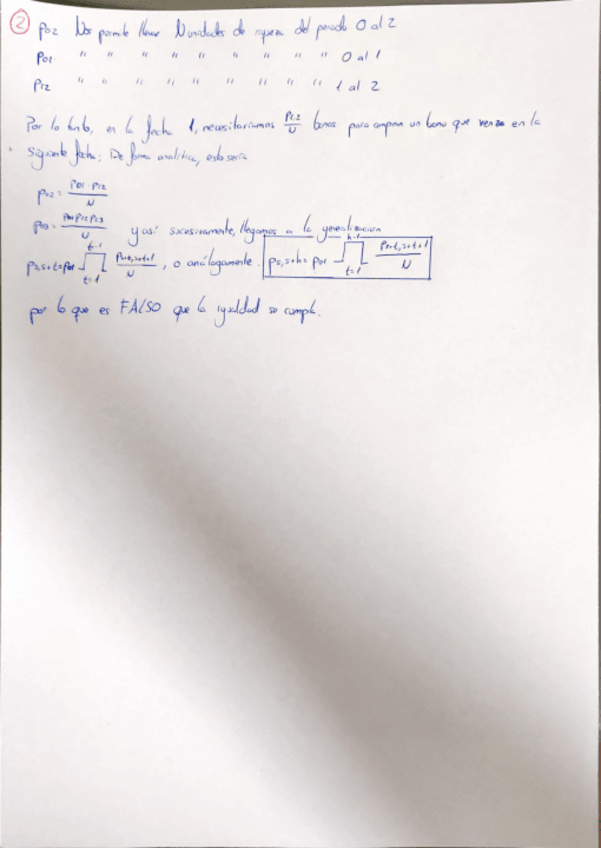 ② P02 Nos permite llevar N unidades de riqueza del periodo 0 al 2
P01 " " " " " " " " " 0 al 1
P12 " " " " " " " " " 1 al 2
Por lo tanto, en la fecha 1, necesitaríamos P12/N bonos para comprar un bono que venza en la
siguiente fecha: De forma analítica, esto sería
P02 = P01 · P12 / N
P03 = P01 P12 P23 / N y así sucesivamente, llegamos a la generalización
Ps,s+t = P01 ∏_{t=1}^{t-1} Ps+t,s+t+1 / N, o análogamente: Ps,s+h = P01 ∏_{t=1}^{h-1} Ps+t,s+t+1 / N
por lo que es FALSO que la igualdad se cumple.